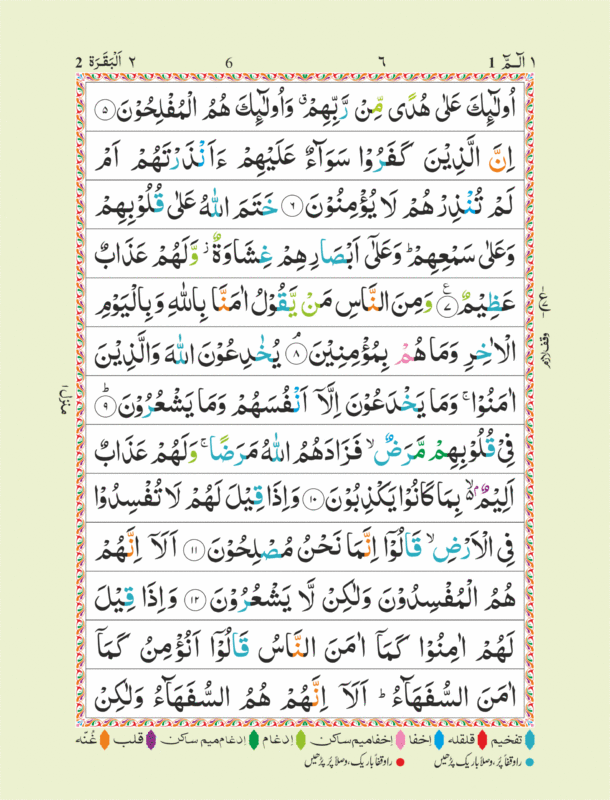 ١ الٓمّٓ 1 ٦ 6 ٢ اَلْبَقَرَة 2
اُولٰٓئِكَ عَلٰى هُدًى مِّنْ رَّبِّهِمْ ۙ وَاُولٰٓئِكَ هُمُ الْمُفْلِحُوْنَ ۝٥
اِنَّ الَّذِيْنَ كَفَرُوْا سَوَآءٌ عَلَيْهِمْ ءَاَنْذَرْتَهُمْ اَمْ
لَمْ تُنْذِرْهُمْ لَا يُؤْمِنُوْنَ ۝٦ خَتَمَ اللّٰهُ عَلٰى قُلُوْبِهِمْ
وَعَلٰى سَمْعِهِمْ ؕ وَعَلٰٓى اَبْصَارِهِمْ غِشَاوَةٌ ؗ وَّلَهُمْ عَذَابٌ
عَظِيْمٌ ۝٧ وَمِنَ النَّاسِ مَنْ يَّقُوْلُ اٰمَنَّا بِاللّٰهِ وَبِالْيَوْمِ
الْاٰخِرِ وَمَا هُمْ بِمُؤْمِنِيْنَ ۝٨ يُخٰدِعُوْنَ اللّٰهَ وَالَّذِيْنَ
وقف لازم
اٰمَنُوْا ۚ وَمَا يَخْدَعُوْنَ اِلَّاۤ اَنْفُسَهُمْ وَمَا يَشْعُرُوْنَ ۝٩
منزل ١
فِىْ قُلُوْبِهِمْ مَّرَضٌ ۙ فَزَادَهُمُ اللّٰهُ مَرَضًا ۚ وَلَهُمْ عَذَابٌ
اَلِيْمٌ ۙ بِمَا كَانُوْا يَكْذِبُوْنَ ۝١٠ وَاِذَا قِيْلَ لَهُمْ لَا تُفْسِدُوْا
فِى الْاَرْضِ ۙ قَالُوْٓا اِنَّمَا نَحْنُ مُصْلِحُوْنَ ۝١١ اَلَاۤ اِنَّهُمْ
هُمُ الْمُفْسِدُوْنَ وَلٰكِنْ لَّا يَشْعُرُوْنَ ۝١٢ وَاِذَا قِيْلَ
لَهُمْ اٰمِنُوْا كَمَاۤ اٰمَنَ النَّاسُ قَالُوْٓا اَنُؤْمِنُ كَمَاۤ
اٰمَنَ السُّفَهَآءُ ؕ اَلَاۤ اِنَّهُمْ هُمُ السُّفَهَآءُ وَلٰكِنْ
تفخیم قلقله إخفا إخفامیم ساکن إدغام إدغام میم ساکن قلب غُنّه
راوقفاً پُر، وصلاً باریک پڑھیں راوقفاً باریک، وصلاً پُر پڑھیں